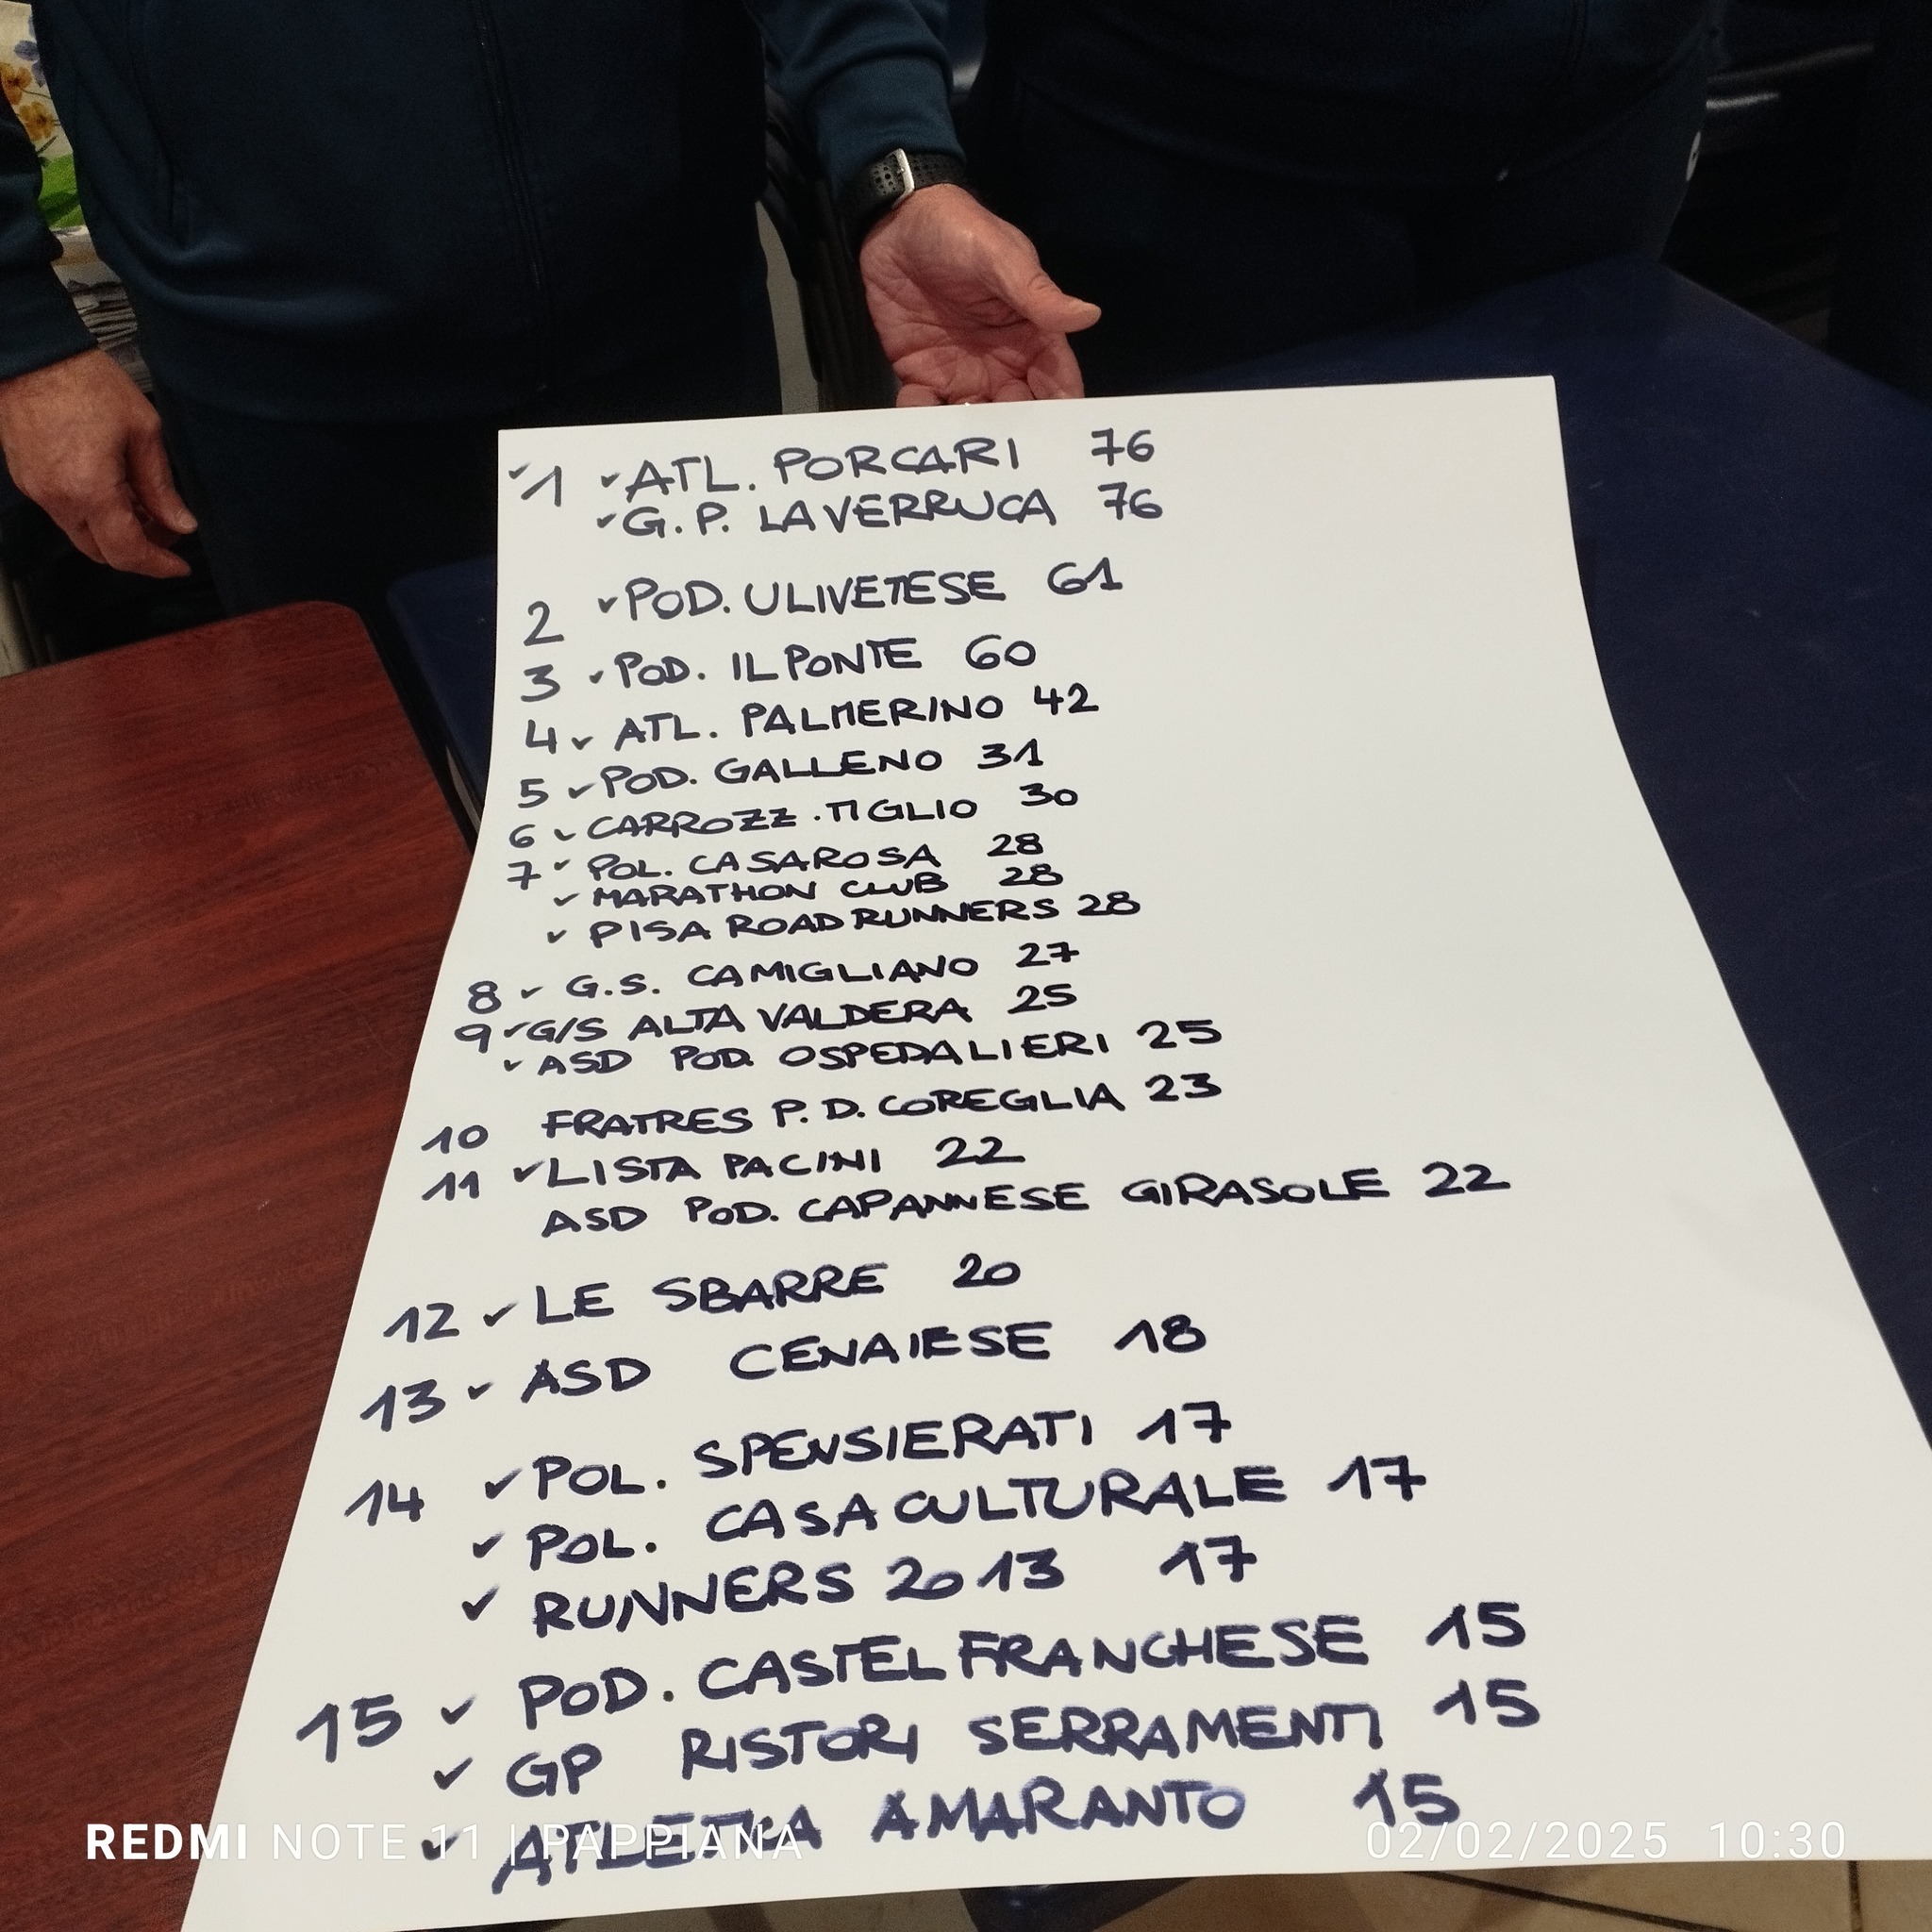 1 ATL. PORCARI 76
G.P. LA VERRUCA 76
2 POD. ULIVETESE 61
3 POD. IL PONTE 60
4 ATL. PALMERINO 42
5 POD. GALLENO 31
6 CARROZZ. TIGLIO 30
7 POL. CASAROSA 28
MARATHON CLUB 28
PISA ROAD RUNNERS 28
8 G.S. CAMIGLIANO 27
9 G/S ALTA VALDERA 25
ASD POD. OSPEDALIERI 25
10 FRATRES P. D. COREGLIA 23
11 LISTA PACINI 22
ASD POD. CAPANNESE GIRASOLE 22
12 LE SBARRE 20
13 ASD CENAIESE 18
14 POL. SPENSIERATI 17
POL. CASA CULTURALE 17
RUNNERS 2013 17
15 POD. CASTELFRANCHESE 15
GP RISTORI SERRAMENTI 15
ATLETICA AMARANTO 15
REDMI NOTE 11 | PAPPIANA 02/02/2025 10:30